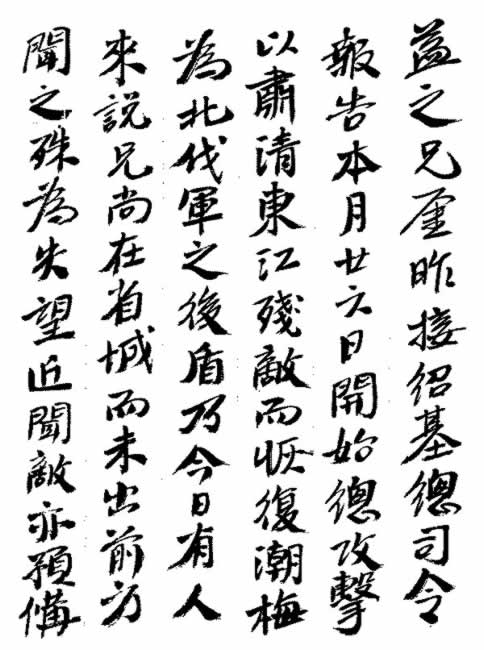 益之兄厪昨接紹基總司令
報告本月廿六日開始總攻擊
以肅清東江殘敵而恢復潮梅
為北伐軍之後盾乃今日有人
來說兄尚在省城而未出前方
聞之殊為失望近聞敵亦預備